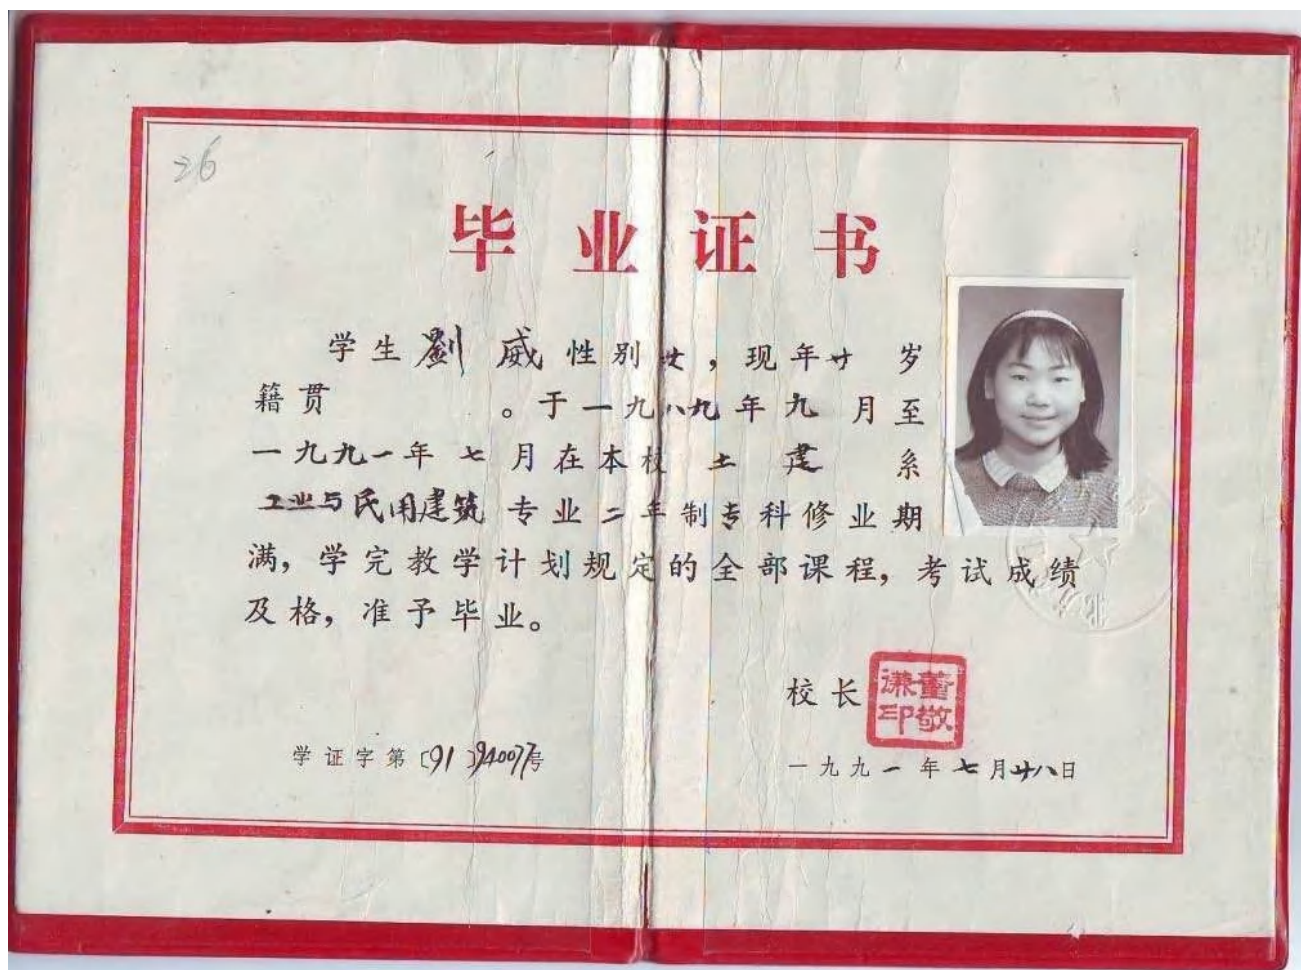 26
毕业证书
学生劉威性别女，现年廿岁
籍贯　　　。于一九八九年九月至
一九九一年七月在本校土建系
工业与民用建筑专业二年制专科修业期
满，学完教学计划规定的全部课程，考试成绩
及格，准予毕业。
校长
董敬谦印
学证字第〔91〕94007号
一九九一年七月廿八日